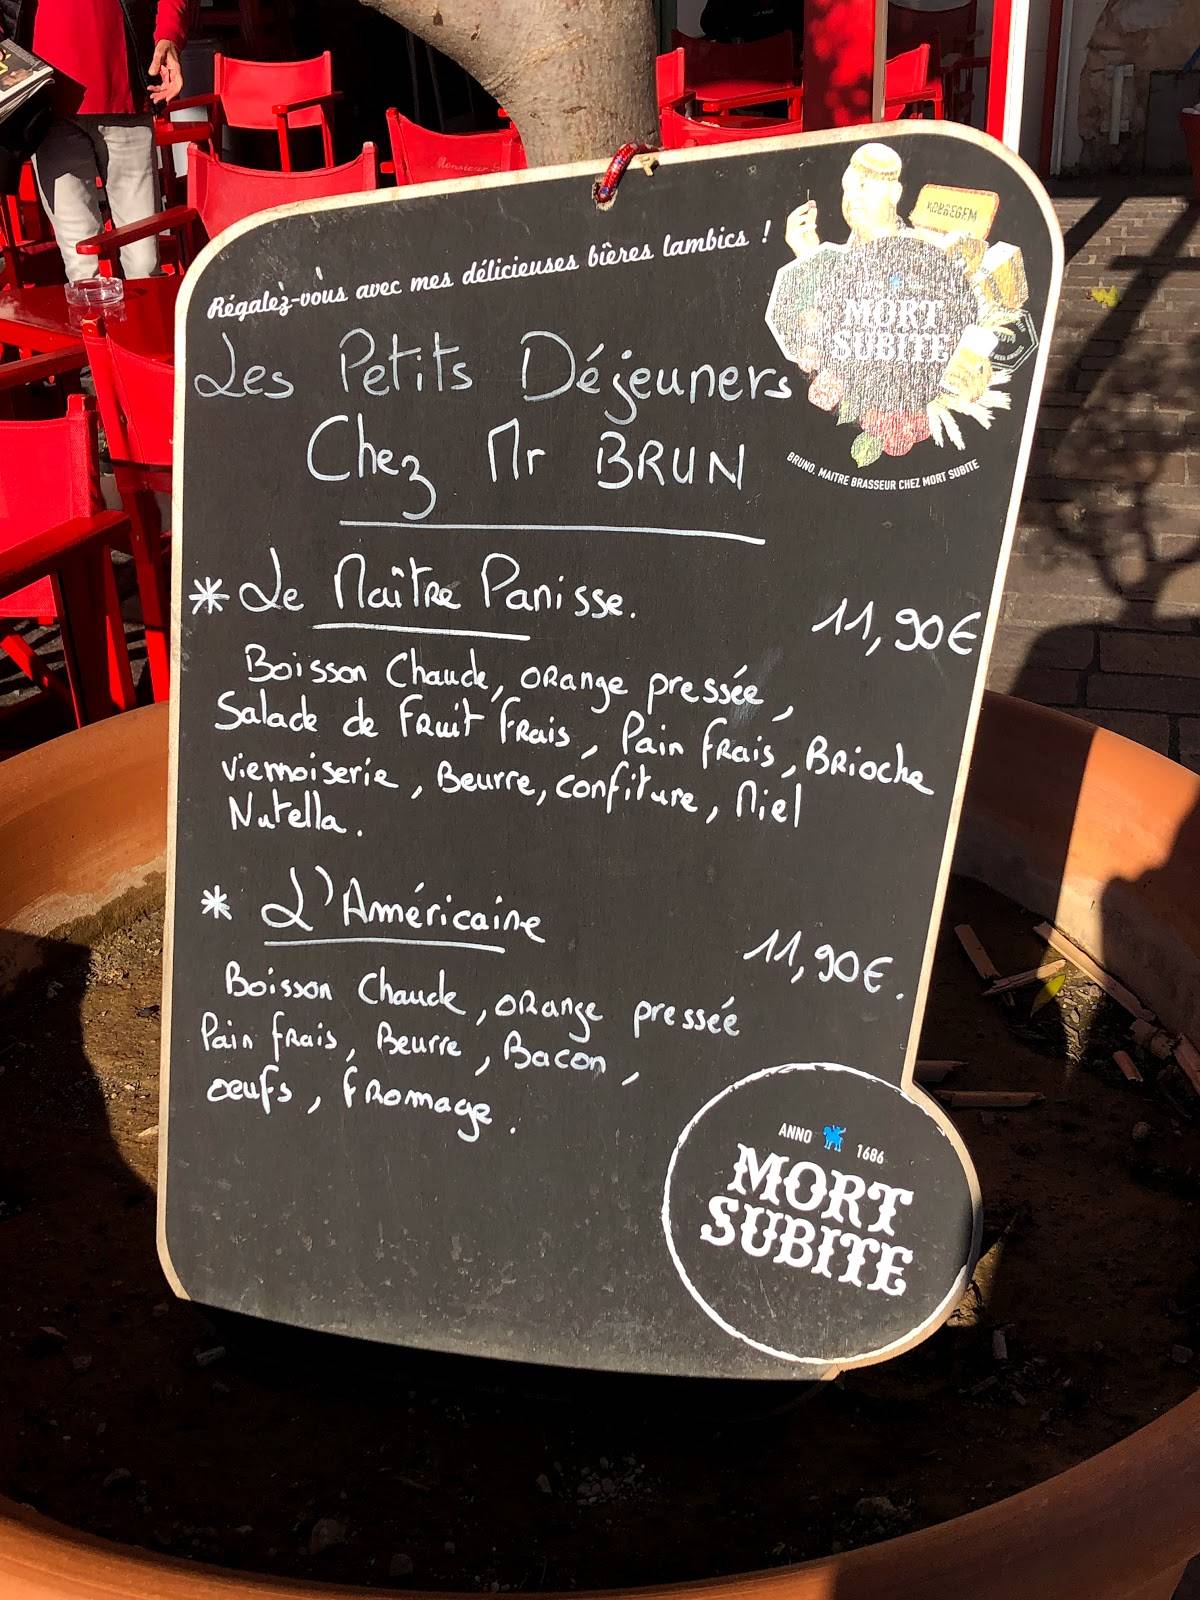 Monsieur
Régalez-vous avec mes délicieuses bières lambics !
MORT
SUBITE
BRUNO, MAITRE BRASSEUR CHEZ MORT SUBITE
Les Petits Déjeuners
Chez Mr BRUN
* Le Maître Panisse. 11,90€
Boisson Chaude, orange pressée,
Salade de Fruit Frais, Pain frais, Brioche
viennoiserie, Beurre, confiture, Miel
Nutella.
* L'Américaine 11,90€.
Boisson Chaude, orange pressée
Pain frais, Beurre, Bacon,
oeufs, fromage.
ANNO 1686
MORT
SUBITE